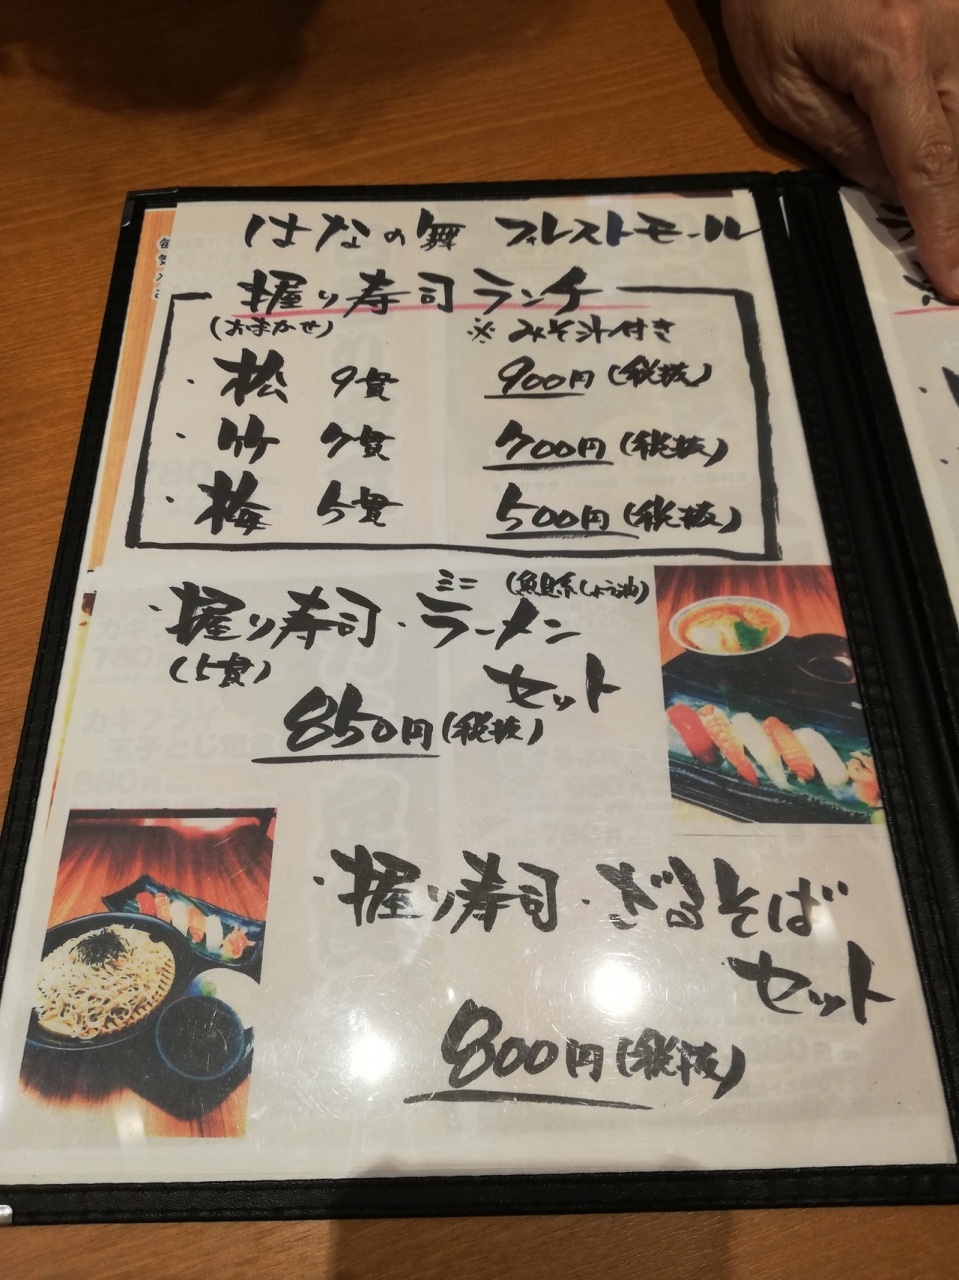 はなの舞 フォレストモール
握り寿司ランチ
(おまかせ) ※みそ汁付き
・松 9貫 900円(税抜)
・竹 7貫 700円(税抜)
・梅 5貫 500円(税抜)
・握り寿司・ミニラーメン(魚貝系しょう油)
(5貫) セット
850円(税抜)
・握り寿司・ざるそば
セット
800円(税抜)
カキフライ
玉子とじ
880円
780